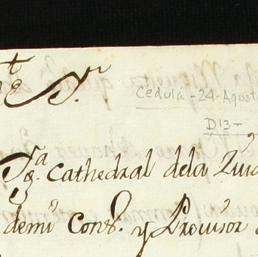 te Sr
Cedula - 24 - Agosto
D13 -
Sta Cathedral dela Ciu
demi Conso. y Provisor